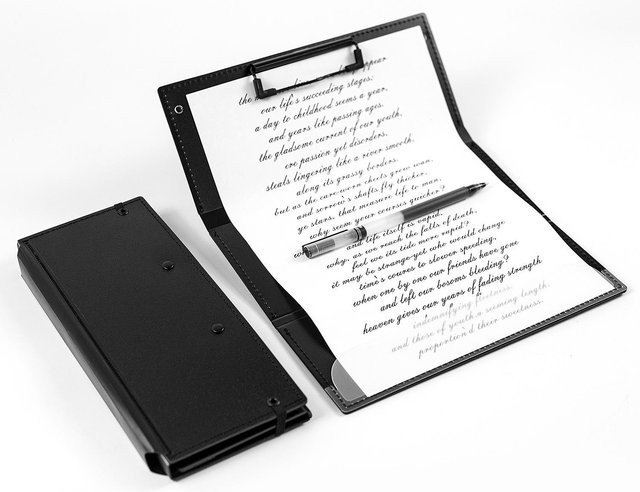 the appear
our life's succeeding stages:
a day to childhood seems a year,
and years like passing ages.
the gladsome current of our youth,
ere passion yet disorders,
steals lingering like a river smooth,
along its grassy borders.
but as the care-worn cheeks grow wan,
and sorrow's shafts fly thicker,
ye stars, that measure life to man,
why seem your courses quicker?
and life itself is vapid,
why, as we reach the falls of death,
feel we its tide more rapid?
it may be strange-yet who would change
time's coures to slower speeding,
when one by one our friends have gone
and left our bosoms bleeding?
heaven gives our years of fading strength
indemnifying fleetness;
and those of youth a seeming length,
proportion'd their sweetness.